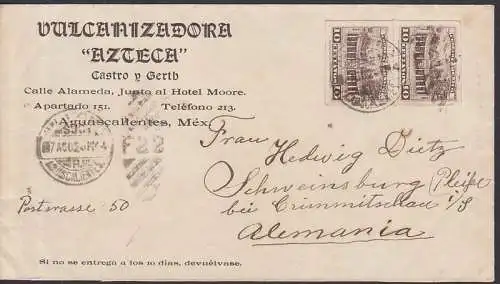 VULCANIZADORA
"AZTECA"
Castro y Gerth
Calle Alameda, Junto al Hotel Moore.
Apartado 151. Teléfono 213.
Aguascalientes, Méx.
Frau
Hedwig Dietz
Schweinsburg (Pleiße)
bei Crimmitschau i/S
Alemania
Poststrasse 50
Si no se entrega a los 10 días, devuélvase.
10
10